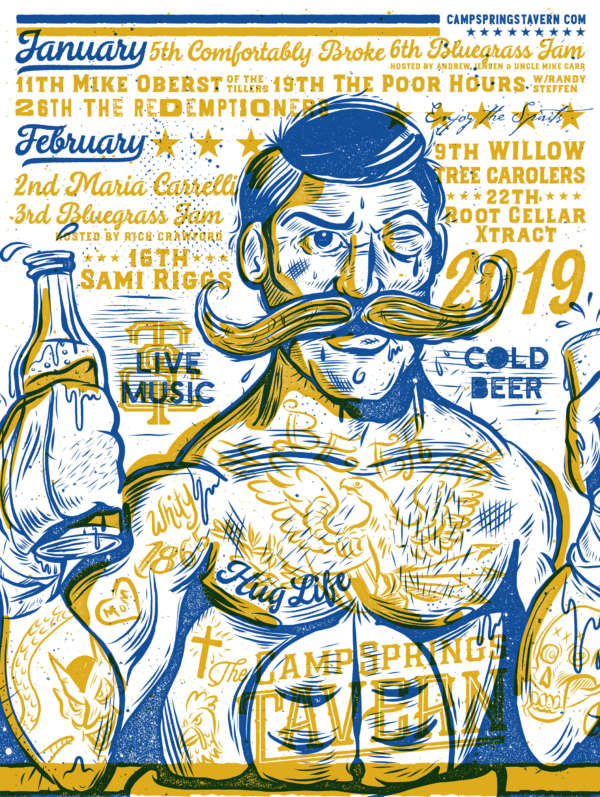 CAMPSPRINGSTAVERN.COM
January 5th Comfortably Broke 6th Bluegrass Jam
HOSTED BY ANDREW JENSEN & UNCLE MIKE CARR
11TH MIKE OBERST OF THE TILLERS 19TH THE POOR HOURS W/RANDY STEFFEN
26TH THE REDEMPTIONERS
Enjoy the Spirits
February
2nd Maria Carrelli
3rd Bluegrass Jam
HOSTED BY RICH CRAWFORD
16TH
SAMI RIGGS
9TH WILLOW
TREE CAROLERS
22TH
ROOT CELLAR
XTRACT
2019
LIVE
MUSIC
COLD
BEER
Whity
Hug Life
MOM
The
CAMPSPRINGS
TAVERN